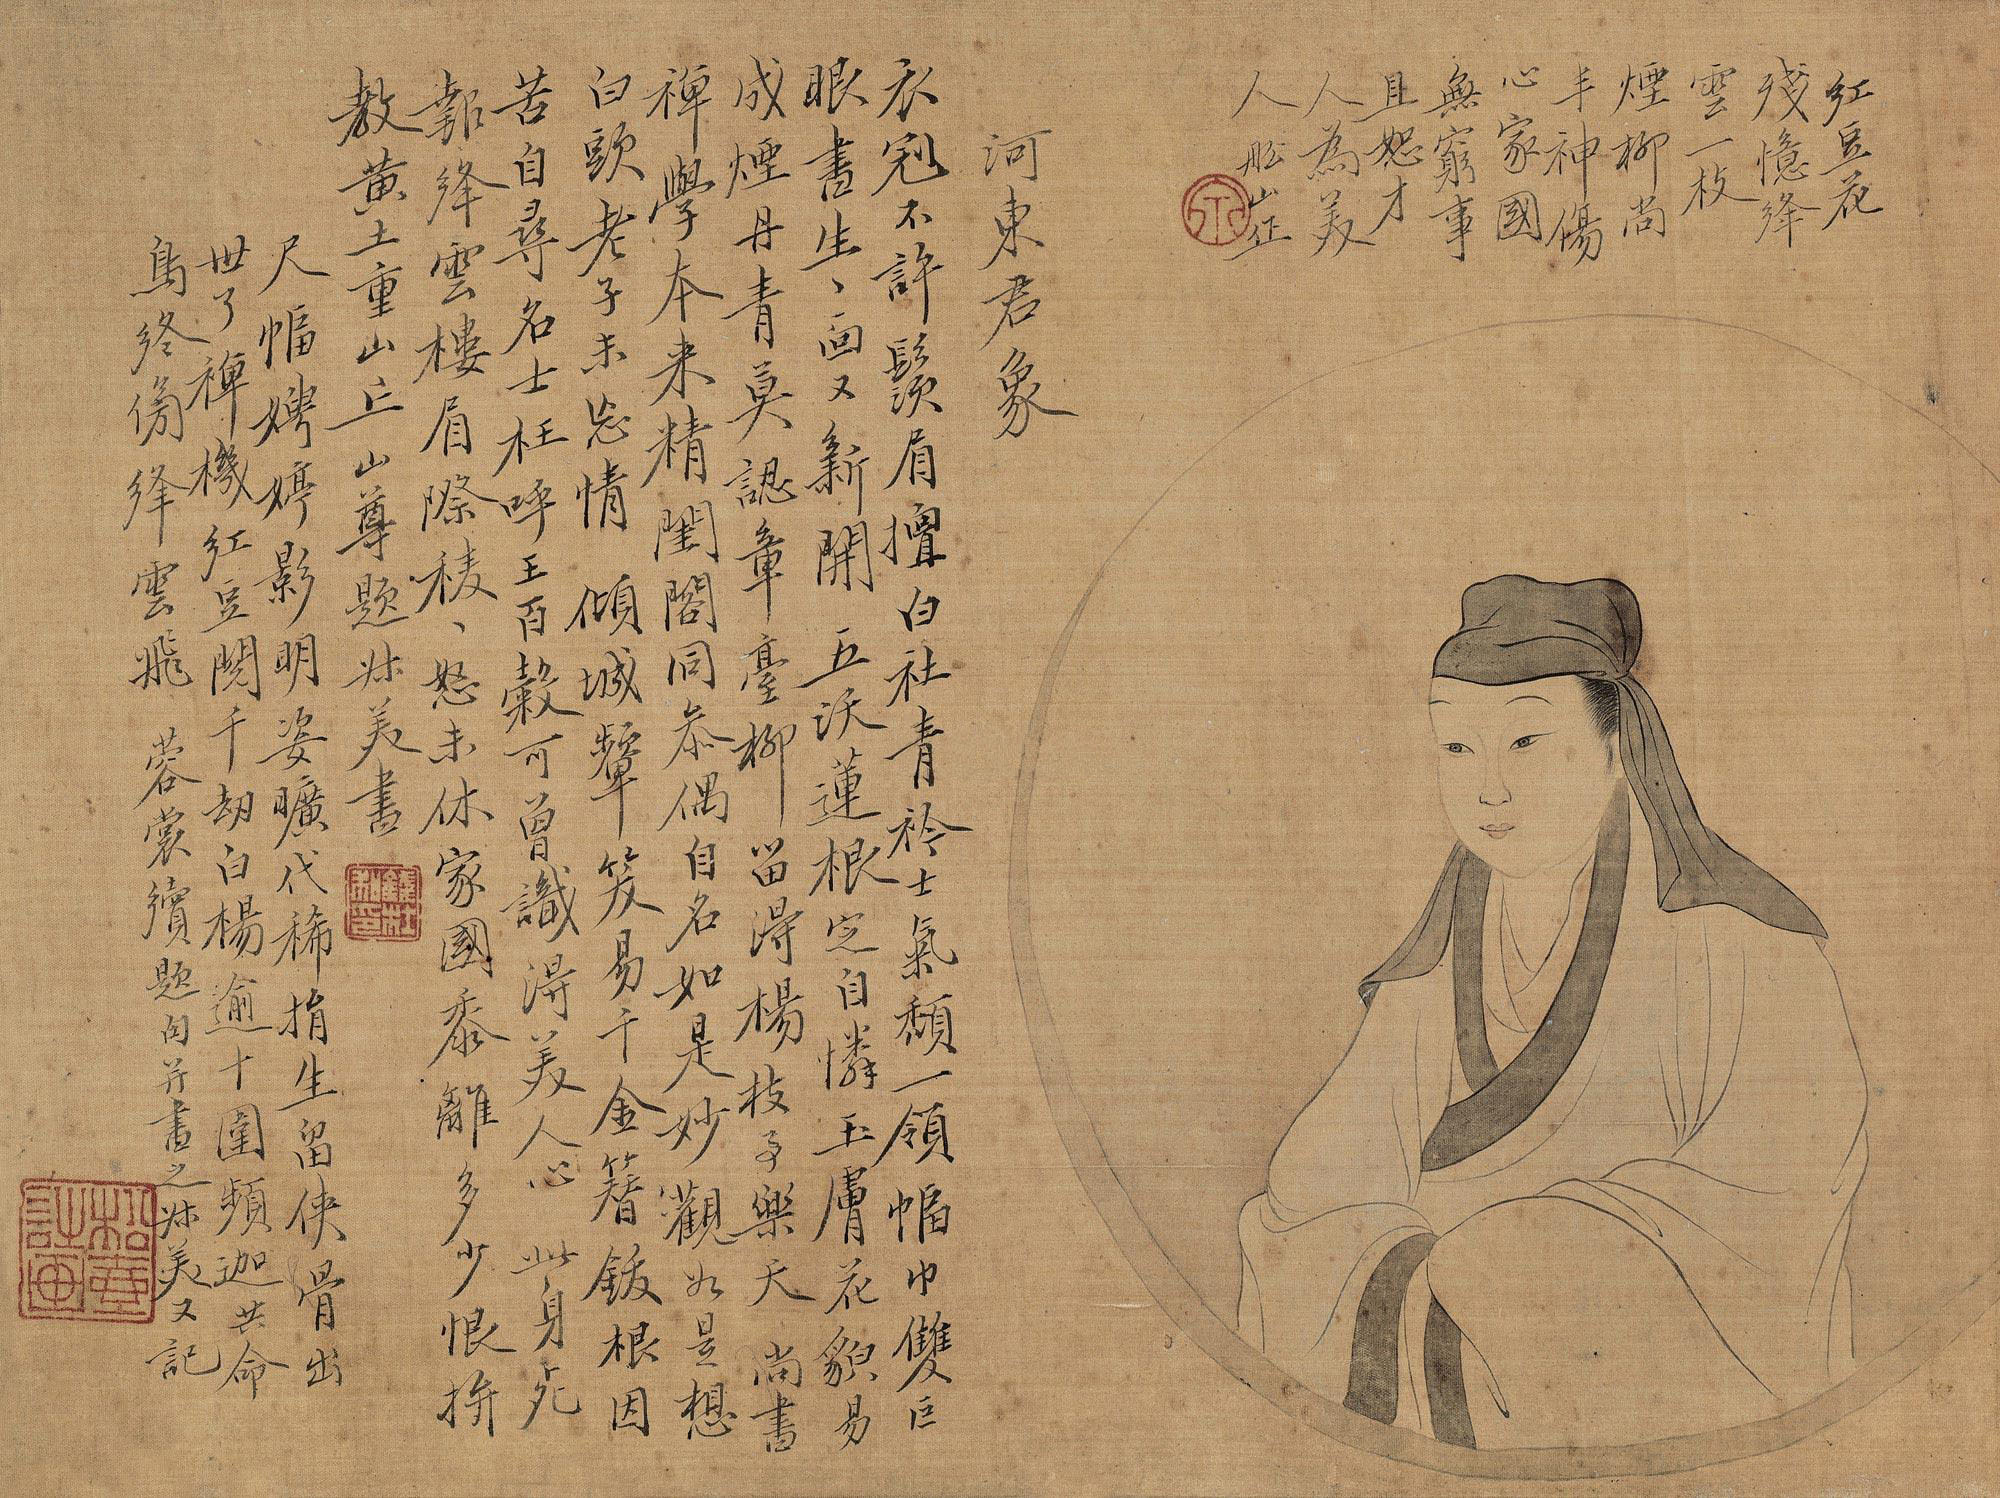 紅豆花
殘憶絳
雲一枝
煙柳尚
丰神傷
心家國
無窮事
且恕才
人為美
人 船山作
河東君象
衣冠不許鬚眉擅白社青衿士氣頹一領幅巾雙巨
眼書生〻面又新開 五沃蓮根定自憐玉膚花貌易
成煙丹青莫認章臺柳留得楊枝事樂天 尚書
禪學本来精閨閣同參偶自名如是妙觀如是想
白頭老子未忘情 傾城顰笑易千金簪根因
苦自尋名士枉呼王百穀可曾識得美人心 此身死
報絳雲樓眉際稜〻怒未休家國黍離多少恨拚
教黃土重山丘 山尊題 叔美書
尺幅娉婷影明姿曠代稀捐生留俠骨出
世了禪機紅豆閱千劫白楊逾十圍頻迦共命
鳥終傍絳雲飛 蓉裳續題句并書之 叔美又記